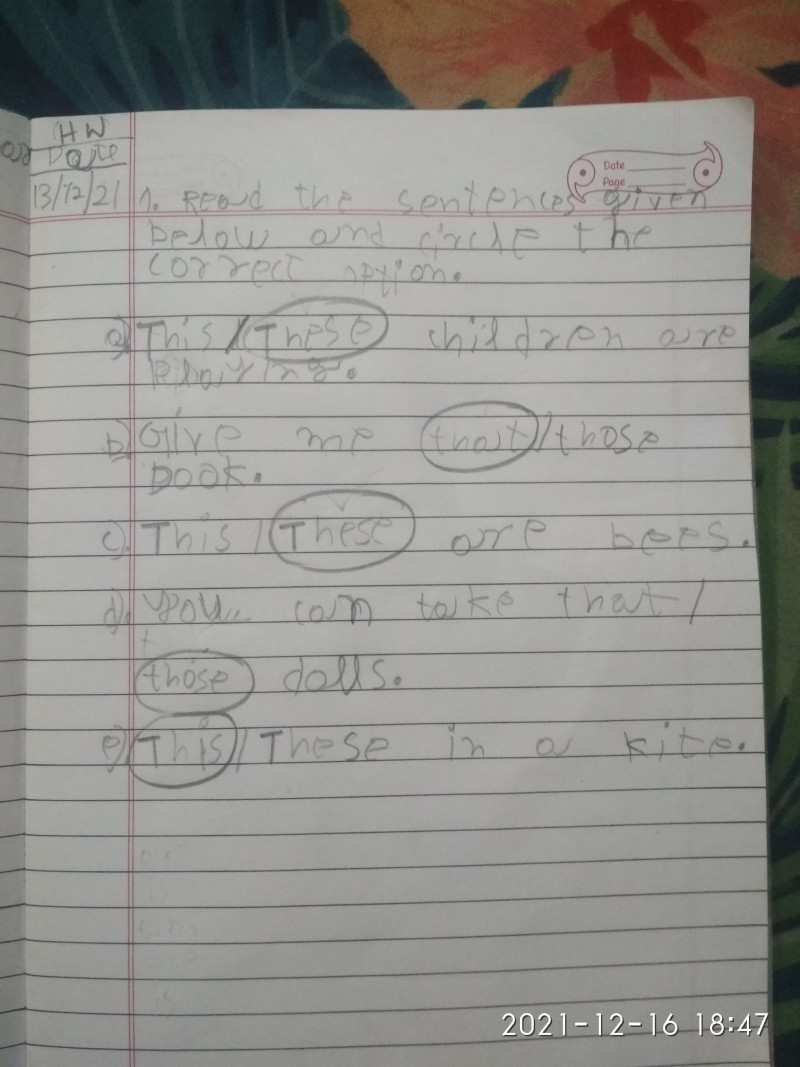 HW
Date
13/12/21
Date
Page
1. Read the sentences given
below and circle the
correct option.
a) This / These children are
playing.
b) Give me that / those
book.
c) This / These are bees.
d) You can take that /
those dolls.
e) This / These in a kite.
2021-12-16 18:47